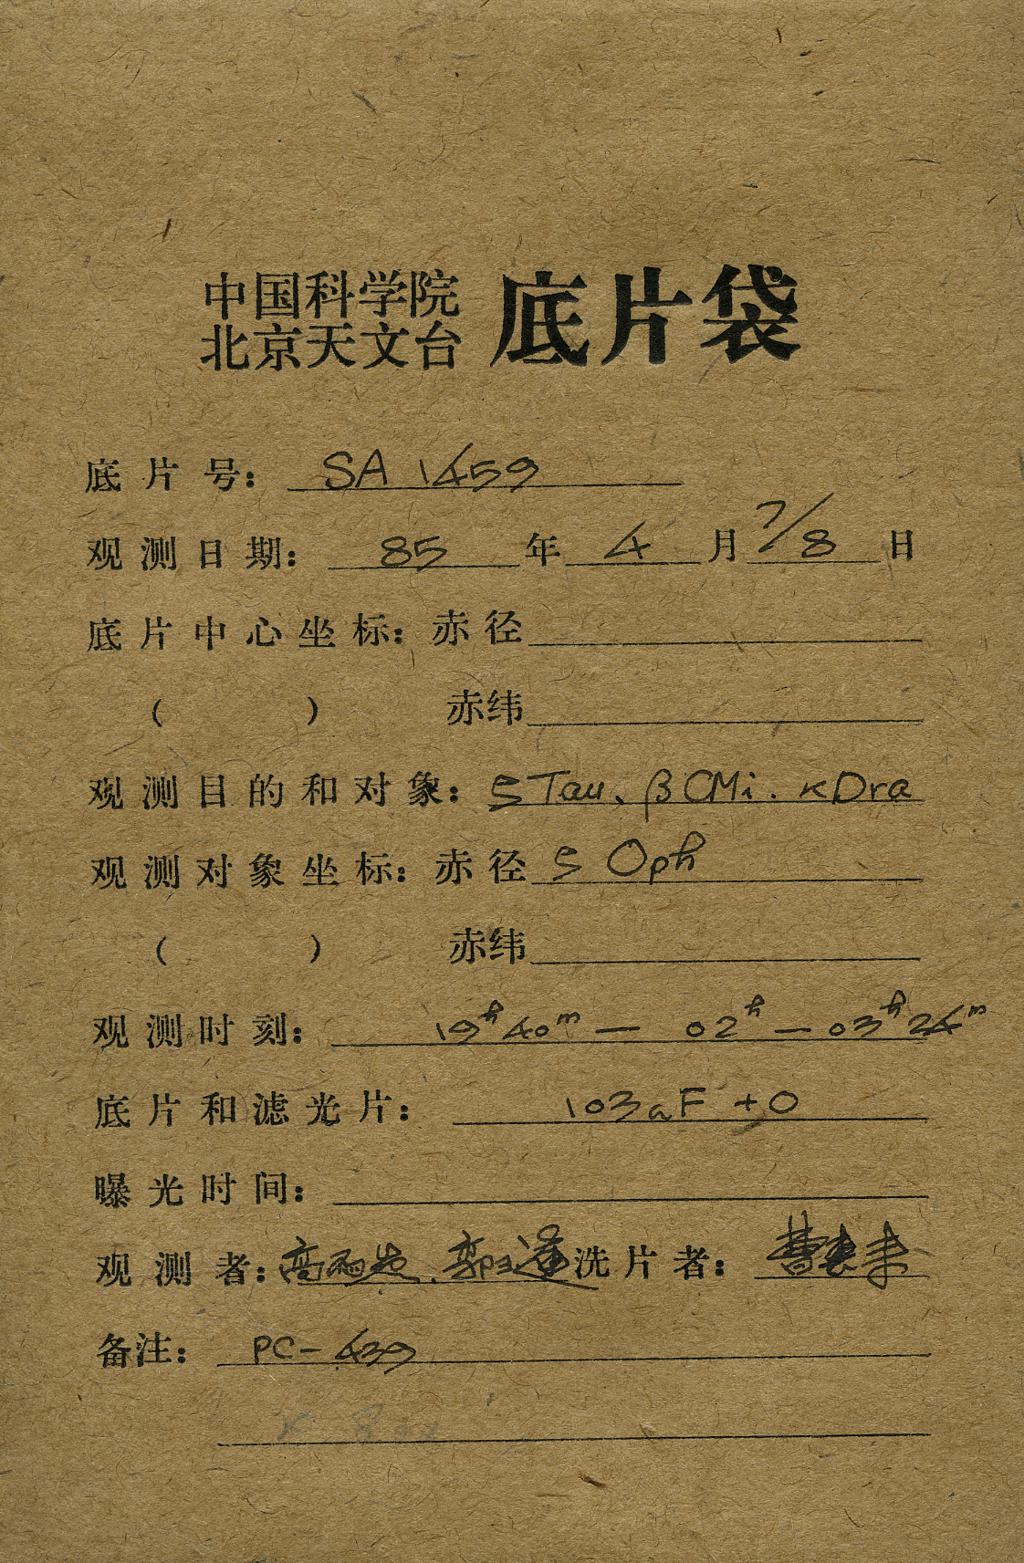 中国科学院
北京天文台 底片袋
底片号: SA 1459
观测日期: 85 年 4 月 7/8 日
底片中心坐标: 赤径
( ) 赤纬
观测目的和对象: ζ Tau、β CMi. κ Dra
观测对象坐标: 赤径 ζ Oph
( ) 赤纬
观测时刻: 19h 40m — 02h — 03h 24m
底片和滤光片: 103aF + O
曝光时间:
观测者: 洗片者:
备注: PC-439